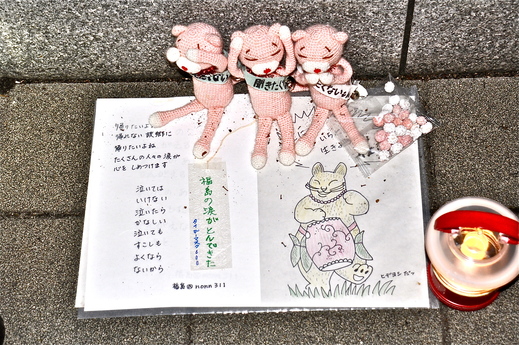 聞きたくな
たくない
帰りたいよね
帰れない故郷に
帰りたいよね
たくさんの人々の涙が
心をしめつけます
泣いては
いけない
泣いたら
かなしい
泣いても
すこしも
よくなら
ないから
福島の涙がとんできた
福島四 nonn 311
ヒデヨシだッ